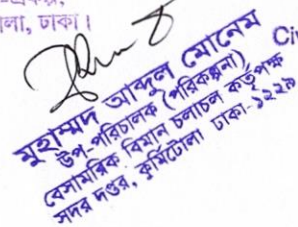 লা, ঢাকা।
Ci
মুহাম্মদ আব্দুল মোনেম
উপ পরিচালক (পরিকল্পনা)
বেসামরিক বিমান চলাচল কর্তৃপক্ষ
সদর দপ্তর, কুর্মিটোলা ঢাকা-১২২৯